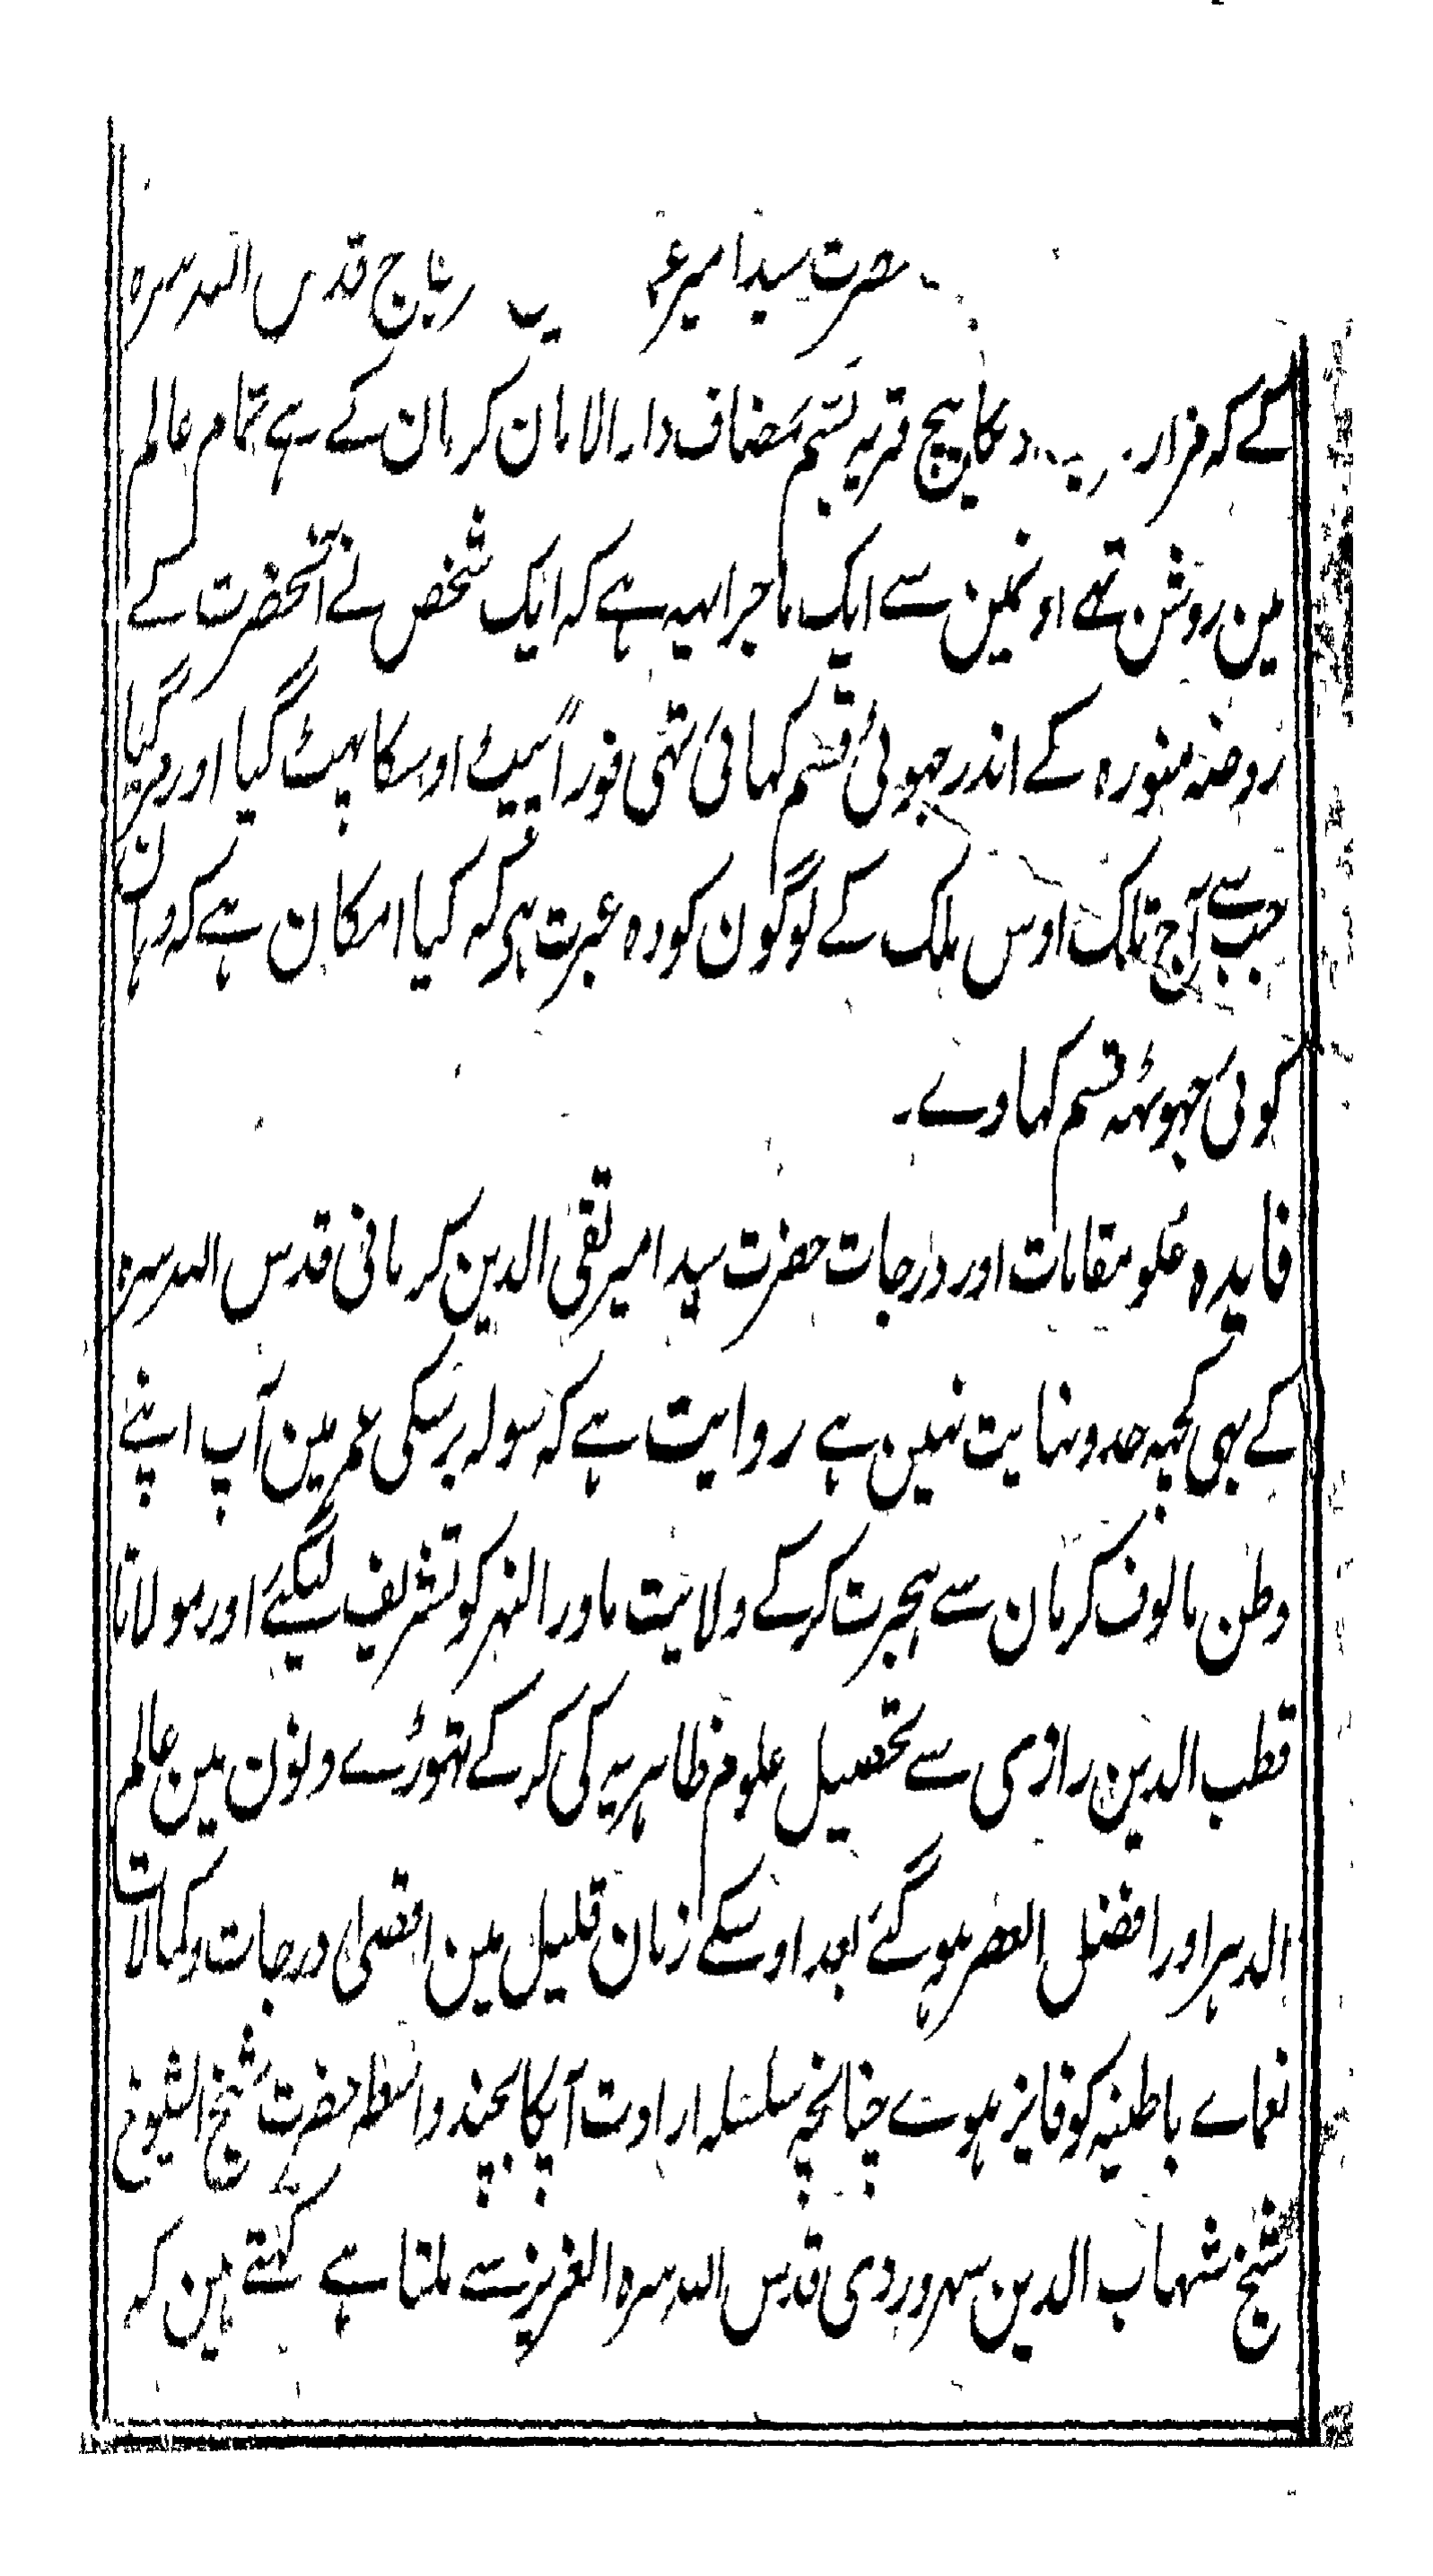 حضرت سید امیر قدس اللہ سرہ
کے کہ مزار دکا بیچ قریہ مضاف دار الامان کرمان کے ہے تمام عالم
مین روشن تہے اونمین سے ایک ماجرا یہہ ہے کہ ایک شخص نے آنحضرت کے
روضہ منورہ کے اندر جہوٹی قسم کہائی تہی فوراً پیٹ اوسکا پہٹ گیا اور مر گیا
جب سے آج تلک اوس ملک کے لوگون کو وہ عبرت ہی کہ کیا امکان ہے کہ وہان
کوئی جہوٹہہ قسم کہاوے ۔
فایدہ علو مقامات اور درجات حضرت سید امیر تقی الدین کرمانی قدس اللہ سرہ
کے بہی کچہہ حد و نہایت نہین ہے روایت ہے کہ سولہ برسکی عمر مین آپ اپنے
وطن مالوف کرمان سے ہجرت کر کے ولایت ماوراالنہر کو تشریف لیگئے اور مولانا
قطب الدین رازی سے تحصیل علوم ظاہریہ کی کر کے تہوڑے دنون مین عالم
الدہر اور افضل العصر ہو گئے بعد اوسکے زمان قلیل مین اقصٰی درجات و کمالات
نعماے باطنیہ کو فایز ہوے چنانچہ سلسلہ ارادت آپکا بچند واسطہ حضرت شیخ الشیوخ
شیخ شہاب الدین سہروردی قدس اللہ سرہ العزیز سے ملتا ہے کہتے ہین کہ